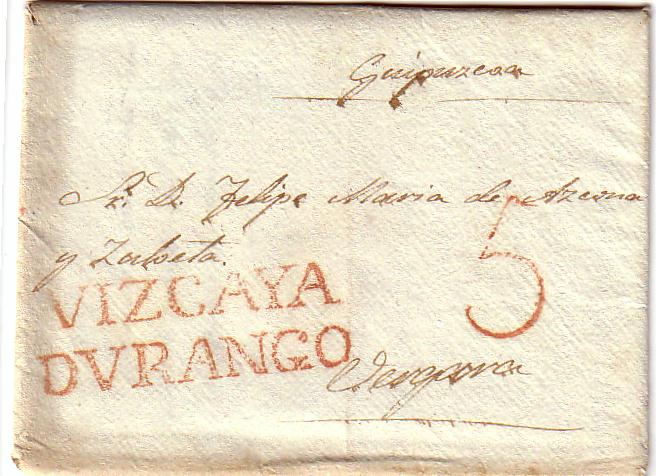 Guipuzcoa
Sr. D. Felipe Maria de Azcona
y Zuloeta.
5
VIZCAYA
DVRANGO
Vergara